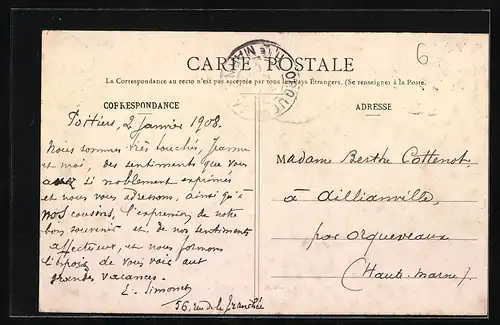 6
CARTE POSTALE
La Correspondance au recto n'est pas acceptée par tous les Pays Étrangers. (Se renseigner à la Poste.
CORRESPONDANCE
ADRESSE
Poitiers, 2 Janvier 1908.
Nous sommes très touchés, Jeanne
et moi, des sentiments que vous
avez si noblement exprimés
et nous vous adressons, ainsi qu'à
nos cousins, l'expression de notre
bon souvenir et de nos sentiments
affectueux, et nous formons
l'espoir de vous voir aux
grandes vacances.
L. Simonet
56, rue de la Tranchée
Madame Berthe Cottenot,
à Aillianville,
par Orquevaux
(Haute-Marne)